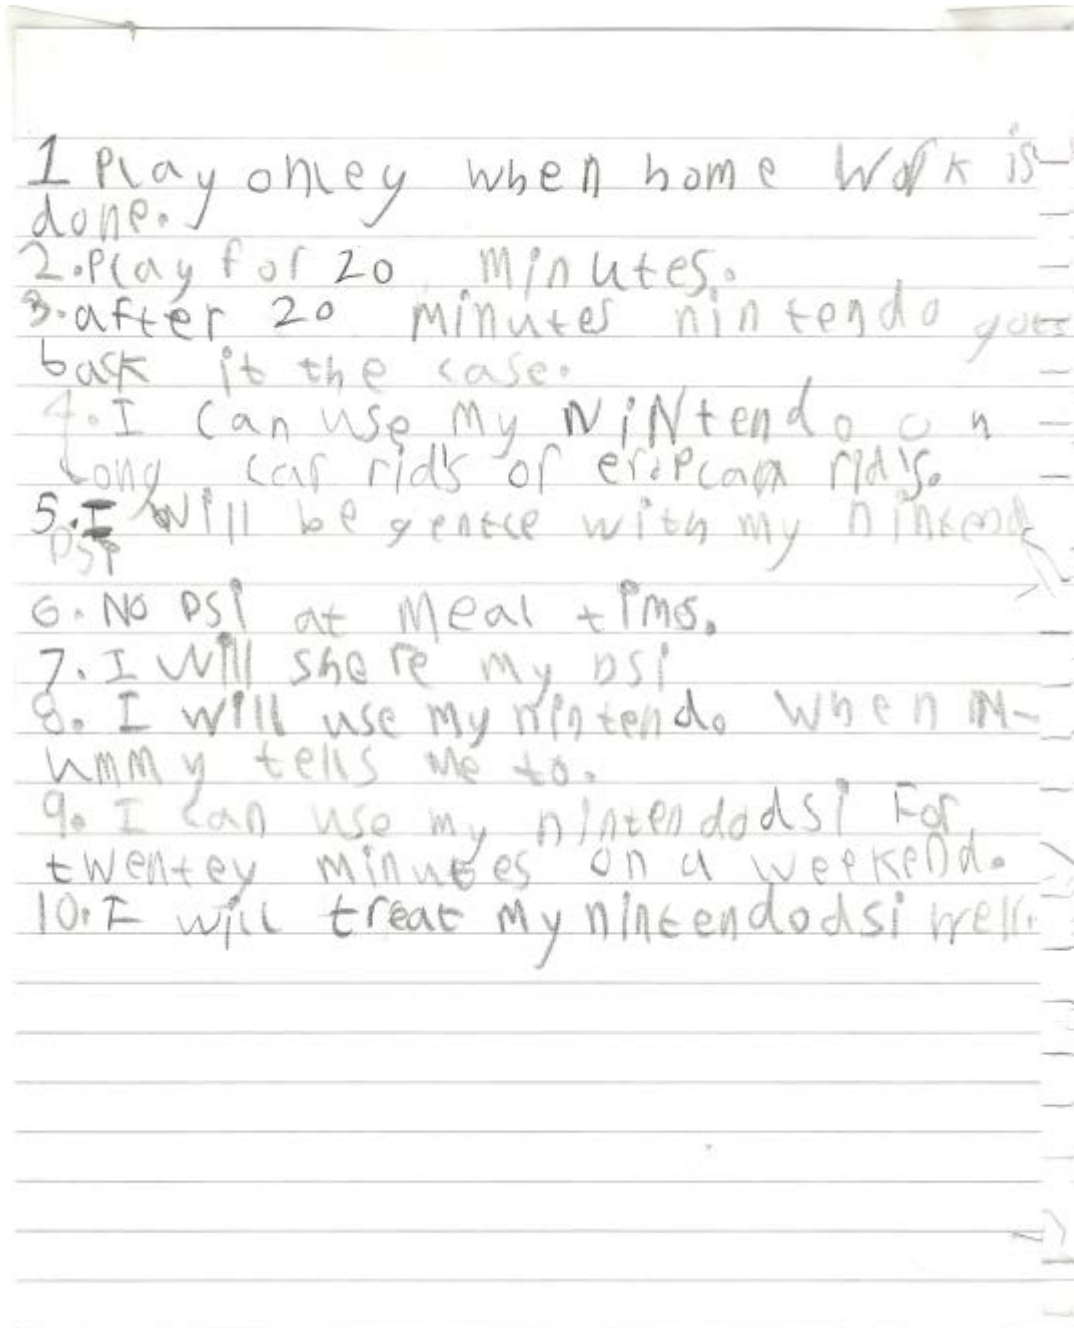 1 Play onley when home work is
done.
2. Play for 20 minutes.
3. after 20 minutes nintendo goes
back it the case.
4. I can use my NiNtendo on
Long car rids or eroplan rids.
5. I will be gentle with my nintend
DSi
6. No DSi at meal tims.
7. I will share my DSi
8. I will use my nintendo when M-
ummy tells me to.
9. I can use my nintendodsi For
twentey minutes on a weekend.
10. I will treat my nintendodsi well.